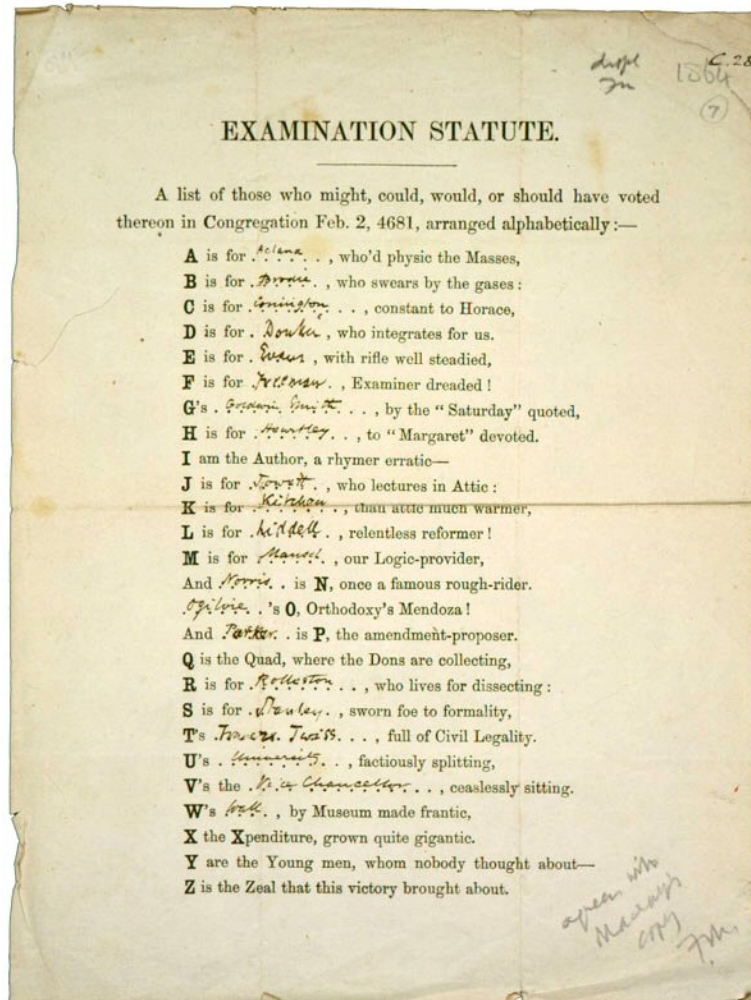 C.28
1864
7
EXAMINATION STATUTE.
A list of those who might, could, would, or should have voted
thereon in Congregation Feb. 2, 4681, arranged alphabetically:—
A is for .Acland. . , who'd physic the Masses,
B is for .Brodie. . , who swears by the gases:
C is for .Conington. . . , constant to Horace,
D is for . Donkin , who integrates for us.
E is for . Evans , with rifle well steadied,
F is for .Freeman. . , Examiner dreaded!
G's . Goldwin Smith. . . , by the "Saturday" quoted,
H is for . . . , to "Margaret" devoted.
I am the Author, a rhymer erratic—
J is for .Jowett. . , who lectures in Attic:
K is for .Kitchen. . , than attic much warmer,
L is for .Liddell. . , relentless reformer!
M is for .Mansel. . , our Logic-provider,
And .Norris. . is N, once a famous rough-rider.
.Ogilvie. . 's O, Orthodoxy's Mendoza!
And .Parker. . is P, the amendment-proposer.
Q is the Quad, where the Dons are collecting,
R is for .Rolleston. . . , who lives for dissecting:
S is for .Stanley. . , sworn foe to formality,
T's .Travers Twiss. . . , full of Civil Legality.
U's . University. . . , factiously splitting,
V's the .Vice Chancellor. . . , ceaslessly sitting.
W's .Wall. . , by Museum made frantic,
X the Xpenditure, grown quite gigantic.
Y are the Young men, whom nobody thought about—
Z is the Zeal that this victory brought about.
agrees with
copy